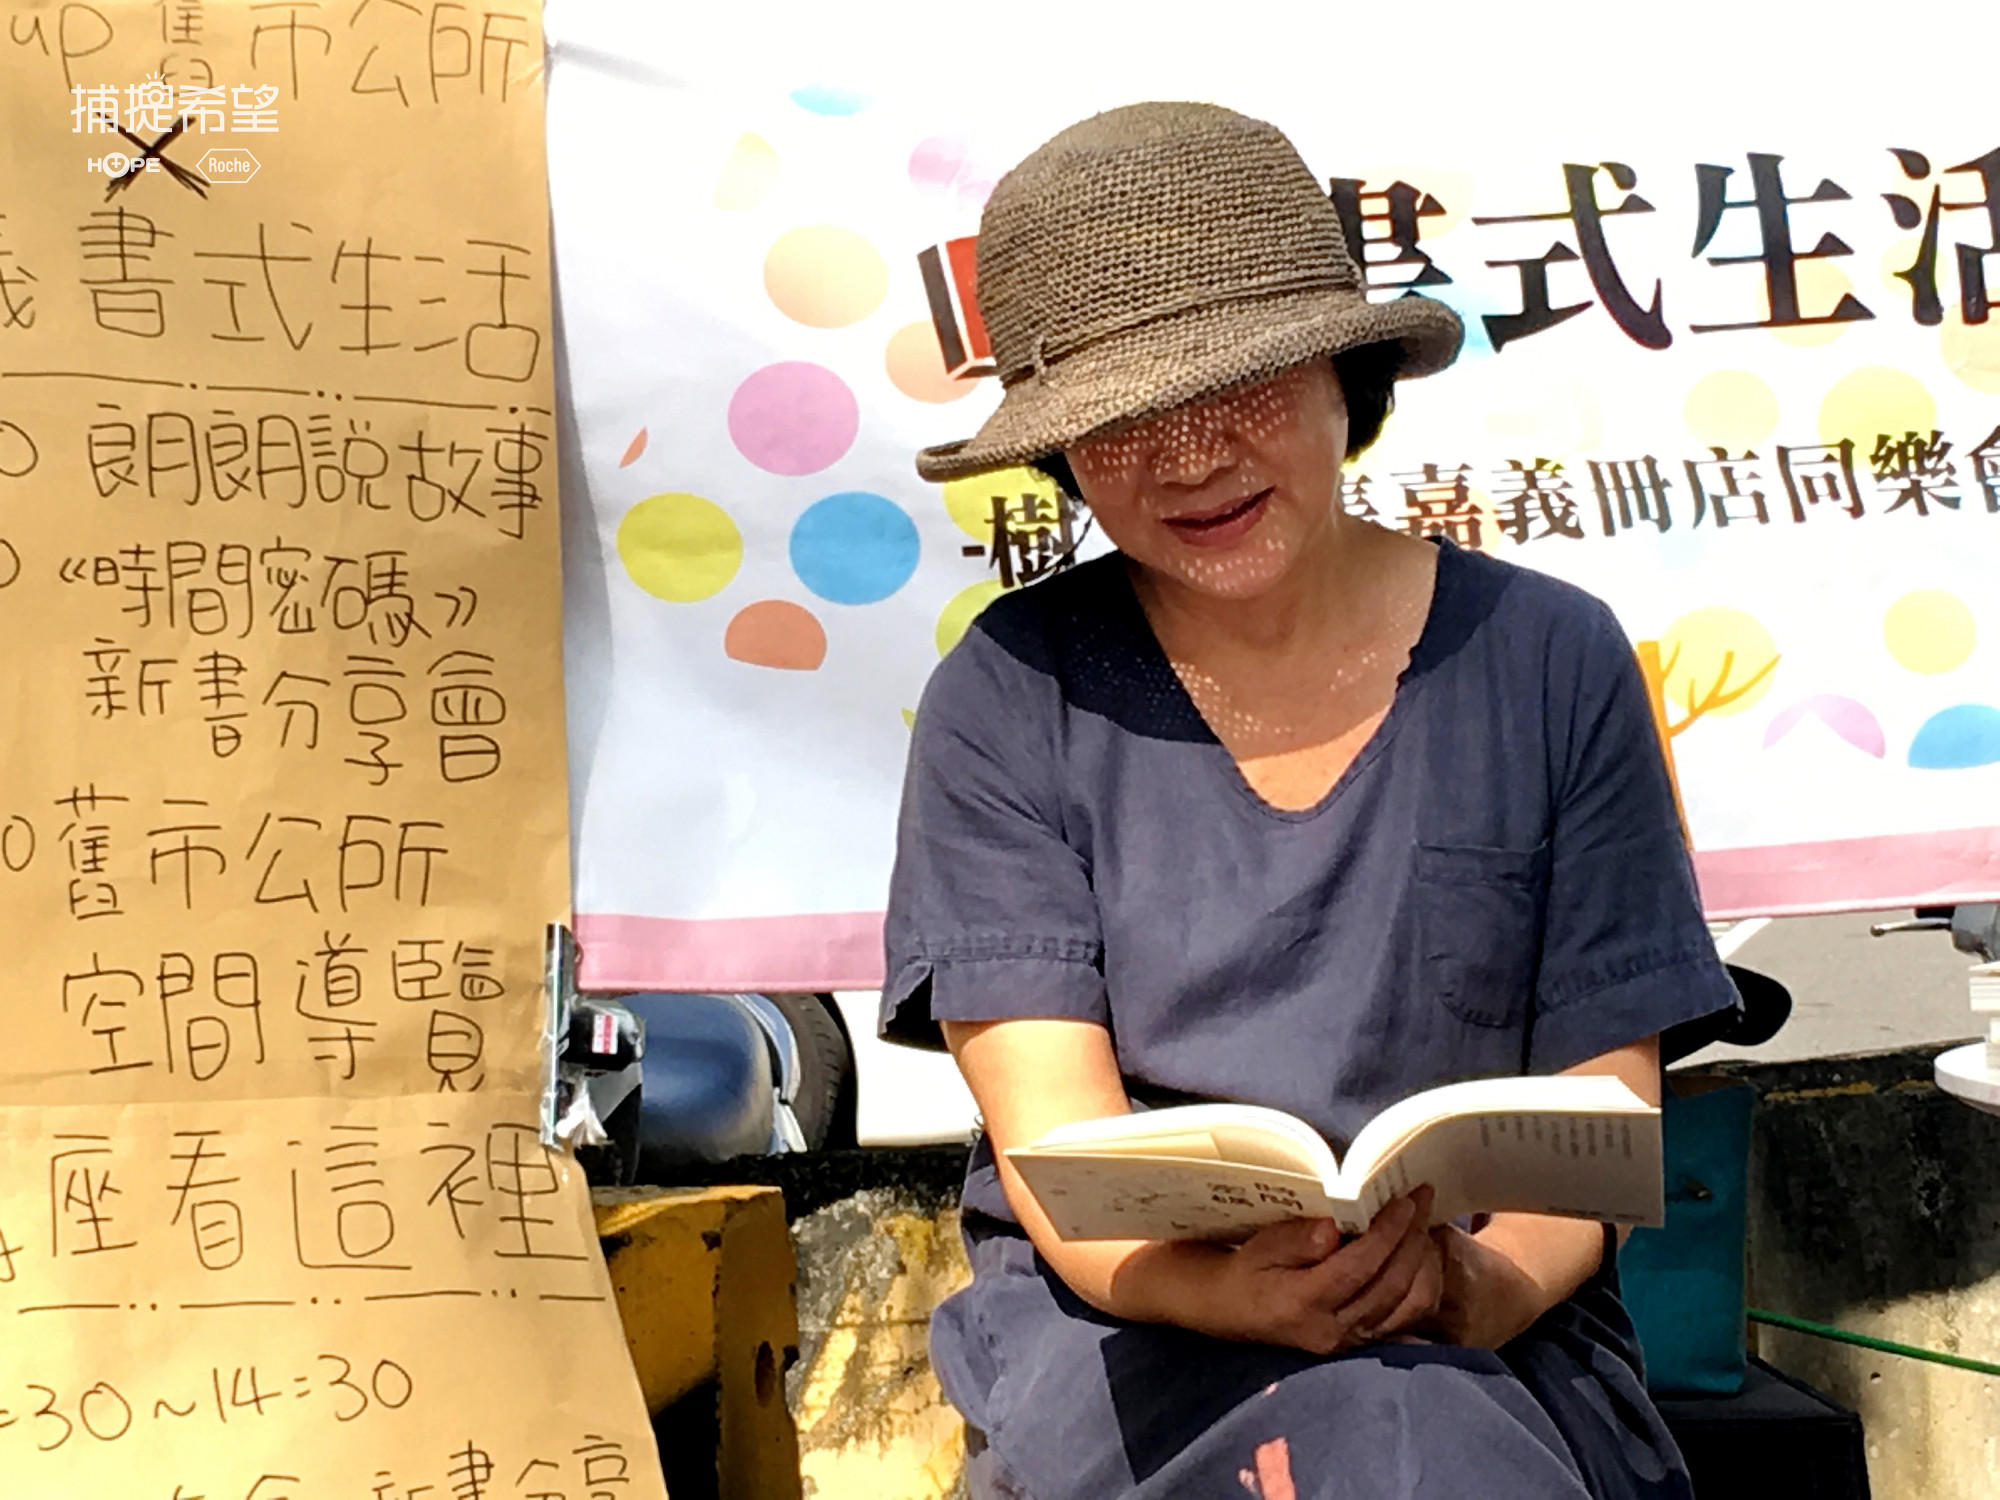 up 舊市公所
捕捉希望
HOPE Roche
書式生活
朗朗說故事
《時間密碼》
新書分享會
舊市公所
空間導覽
座看這裡
:30~14:30
新書分享
書式生活
-樹
嘉義冊店同樂會